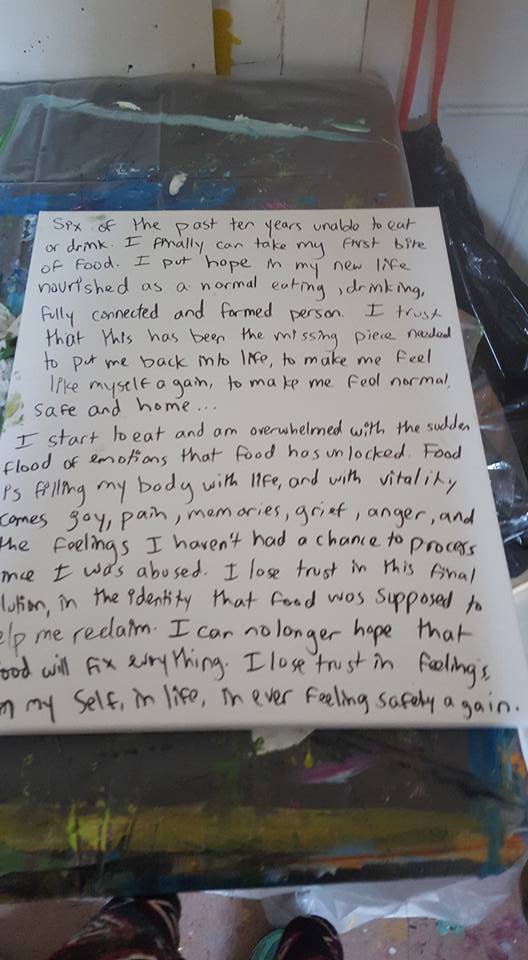 Six of the past ten years unable to eat
or drink. I finally can take my first bite
of food. I put hope in my new life
nourished as a normal eating, drinking,
fully connected and formed person. I trust
that this has been the missing piece needed
to put me back into life, to make me feel
like myself again, to make me feel normal,
safe and home...
I start to eat and am overwhelmed with the sudden
flood of emotions that food has unlocked. Food
is filling my body with life, and with vitality
comes joy, pain, memories, grief, anger, and
the feelings I haven't had a chance to process
nce I was abused. I lose trust in this final
lution, in the identity that food was supposed to
elp me reclaim. I can no longer hope that
ood will fix everything. I lose trust in feelings,
n my self, in life, in ever feeling safety again.